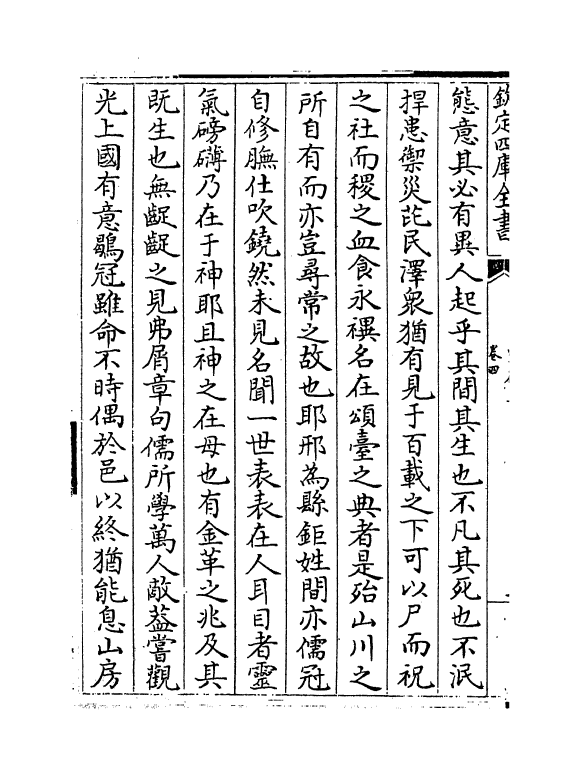 欽定四庫全書
卷四
態意其必有異人起乎其間其生也不凡其死也不泯
捍患禦災庇民澤衆猶有見于百載之下可以尸而祝
之社而稷之血食永禩名在頌臺之典者是殆山川之
所自有而亦豈尋常之故也耶邢為縣鉅姓間亦儒冠
自修膴仕吹鐃然未見名聞一世表表在人耳目者靈
氣磅礴乃在于神耶且神之在母也有金革之兆及其
既生也無齪齪之見弗屑章句儒所學萬人敵葢嘗觀
光上國有意鶡冠雖命不時偶於邑以終猶能息山房